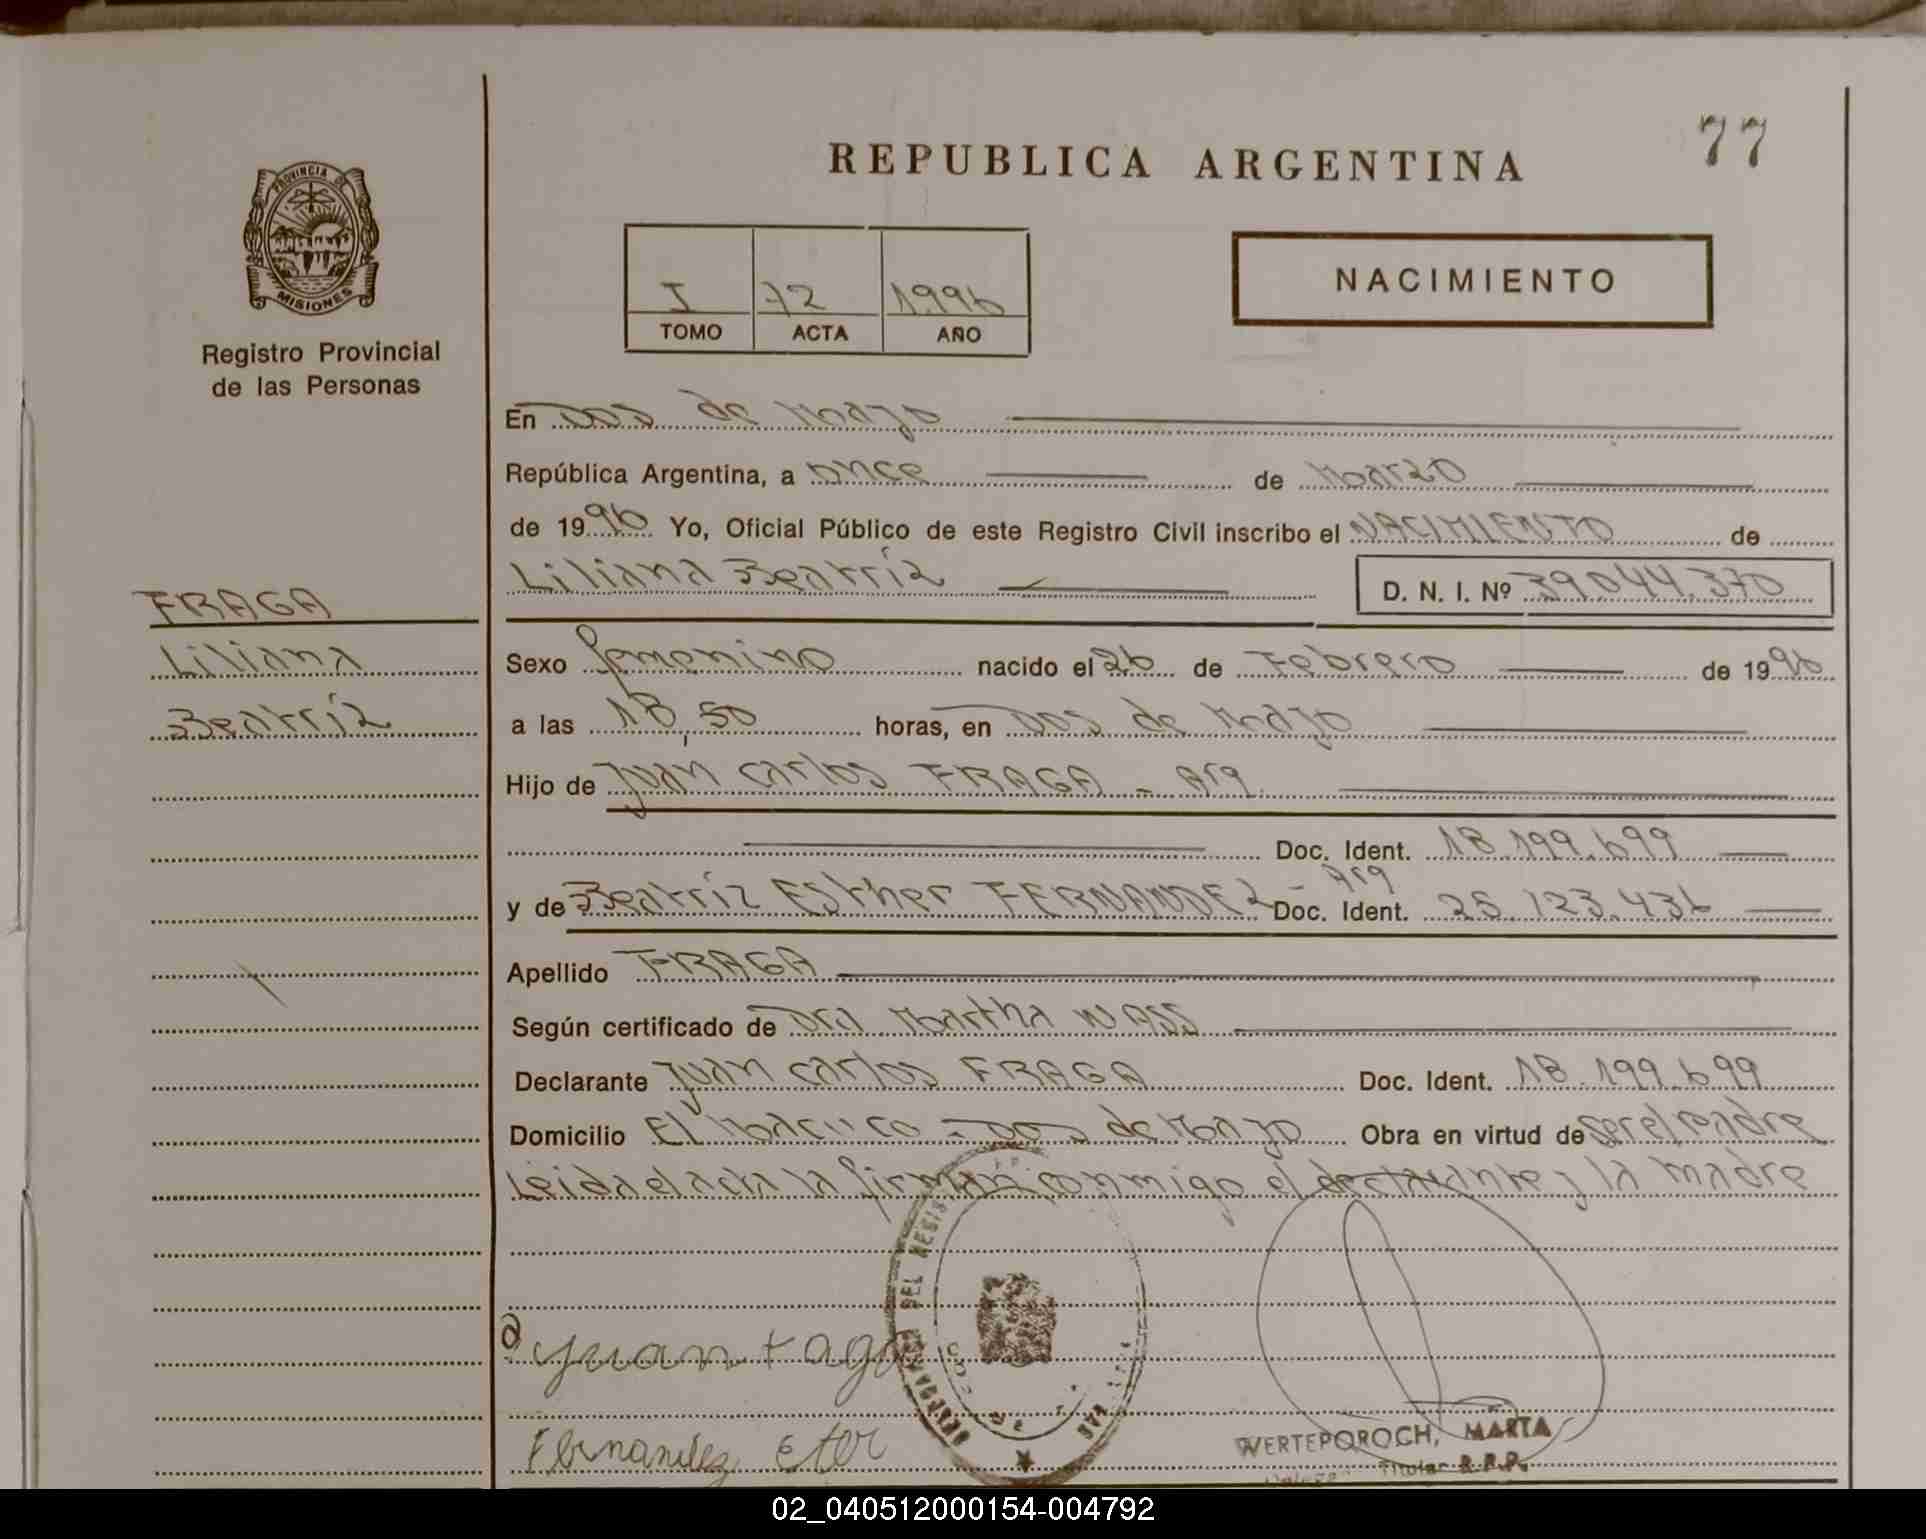 77
REPUBLICA ARGENTINA
PROVINCIA DE
MISIONES
Registro Provincial
de las Personas
I 72 1996
TOMO ACTA AÑO
NACIMIENTO
En Dos de Mayo
República Argentina, a once de Marzo
de 1996 Yo, Oficial Público de este Registro Civil inscribo el NACIMIENTO de
Liliana Beatríz D. N. I. Nº 39.044.370
FRAGA
Liliana
Beatríz
Sexo femenino nacido el 26 de Febrero de 1996
a las 18,50 horas, en Dos de Mayo
Hijo de Juan Carlos FRAGA - Arg.
Doc. Ident. 18.199.699
y de Beatríz Esther FERNANDEZ - Arg Doc. Ident. 25.123.436
Apellido FRAGA
Según certificado de Dra Martha WASS
Declarante Juan Carlos FRAGA Doc. Ident. 18.199.699
Domicilio El Macuco - Dos de Mayo Obra en virtud de ser el padre
Leida el acta la firman conmigo el declarante y la madre
Juan
Fernandez Eter
WERTEPOROCH, MARTA
Titular R.P.P.
02_040512000154-004792